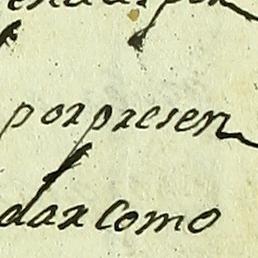 por presen
dar como